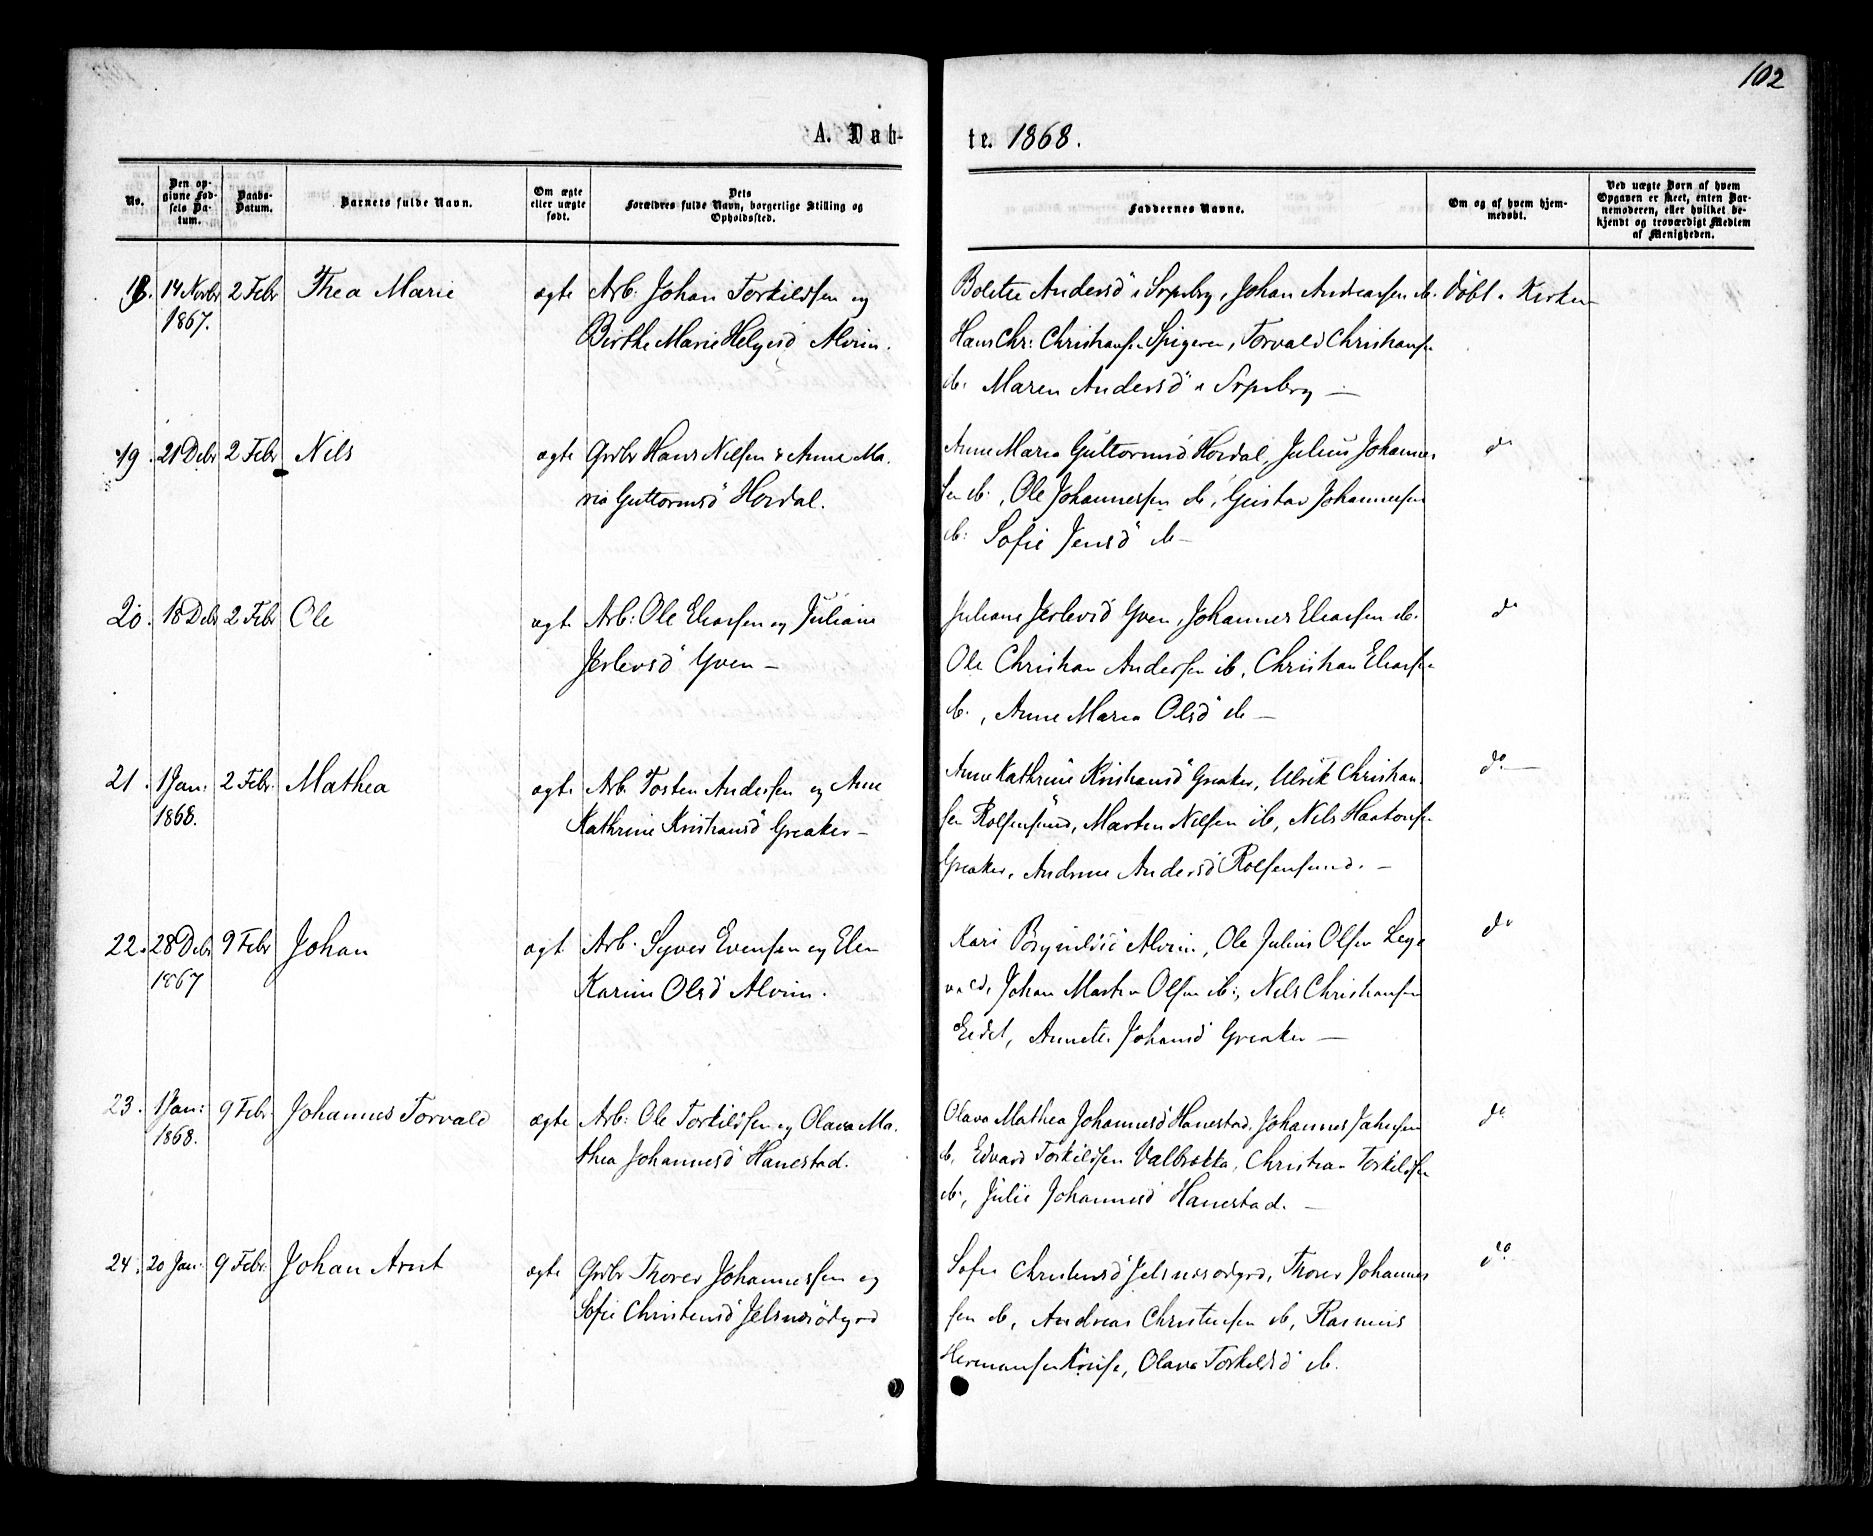 102
A. Døb-
te. 1868.
No.
Den opgivne Fødsels Datum.
Daabs-Datum.
Barnets fulde Navn.
Om ægte eller uægte født.
Dets Forældres fulde Navn, borgerlige Stilling og Opholdssted.
Faddernes Navne.
Om og af hvem hjemmedøbt.
Ved uægte Børn af hvem Opgaven er skeet, enten Barnemoderen, eller hvilket bekjendt og troværdigt Medlem af Menigheden.
18. 14 Novbr 2 Febr Thea Marie ægte Arb. Johan Torkildsen og
1867. Birthe Marie Helgesd Alvim.
Andersd i Srpsbrg, Johan Andreassen ib. Døbt i Kirken
Hans Chr: Christiansen Spigeren, Torvald Christiansen
ib. Maren Andersd i Srpsbrg —
19. 21 Debr 2 Febr Nils ægte Grdbr Hans Nilsen & Anne Ma-
ria Guttormsd Hordal.
Anne Maria Guttormsd Hordal, Julius Johannes-
sen ib., Ole Johannessen ib, Gustav Johannessen
ib: Sofie Jensd ib —
do
20. 18 Debr 2 Febr Ole ægte Arb: Ole Eliassen og Juliane
Jerlevsd Yven —
Juliane Jerlevsd Yven, Johannes Eliassen ib.
Ole Christian Andersen ib, Christian Eliassen
ib., Anne Maria Olsd ib —
do
21. 1 Jan: 2 Febr. Mathea ægte Arb. Tosten Andersen og Anne
1868. Kathrine Kristiansd Greaker —
Anne Kathrine Kristiansd Greaker, Ulrik Christian-
sen Rolfsøsund, Marten Nilsen ib, Nils
Greaker, Andrine Andersd Rolfsøsund. —
do —
22. 28 Debr 9 Febr Johan ægt Arb. Syver Evensen og Elen
1867 Karine Olsd Alvim.
Kari Alvim, Ole Julius Olsen
Johan Martin Olsen ib:, Nils Christiansen
Eidet, Annete Johansd Greaker —
do
23. 1 Jan: 9 Febr. Johannes Torvald ægte Arb: Ole Torkildsen og Olava Ma-
1868. thea Johannesd Hanestad.
Olava Mathea Johannesd Hanestad, Johannes
ib, Edvard Torkildsen Valbrække, Christian Torkildsen
ib., Julie Johannesd Hanestad. —
do
24. 20 Jan. 9 Febr. Johan Arnt ægte Grdbr Thorer Johannessen og
Sofie Christensd Jelsnesødgrd
Sofie Christensd Jelsnesødgrd, Thorer Johannes
sen ib, Andreas Christensen ib, Rasmus
Hermansen, Olava Torkelsd ib.
do